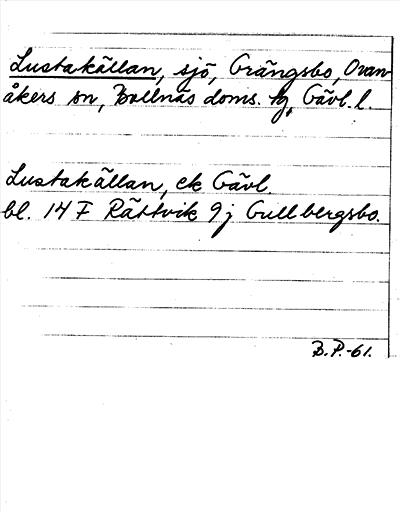 Lustakällan, sjö, Grängsbo, Ovan-
åkers sn, Bollnäs doms. tg, Gävl. l.
Lustakällan, ek Gävl
bl. 14 F Rättvik 9j Gullbergsbo.
B.P.-61.